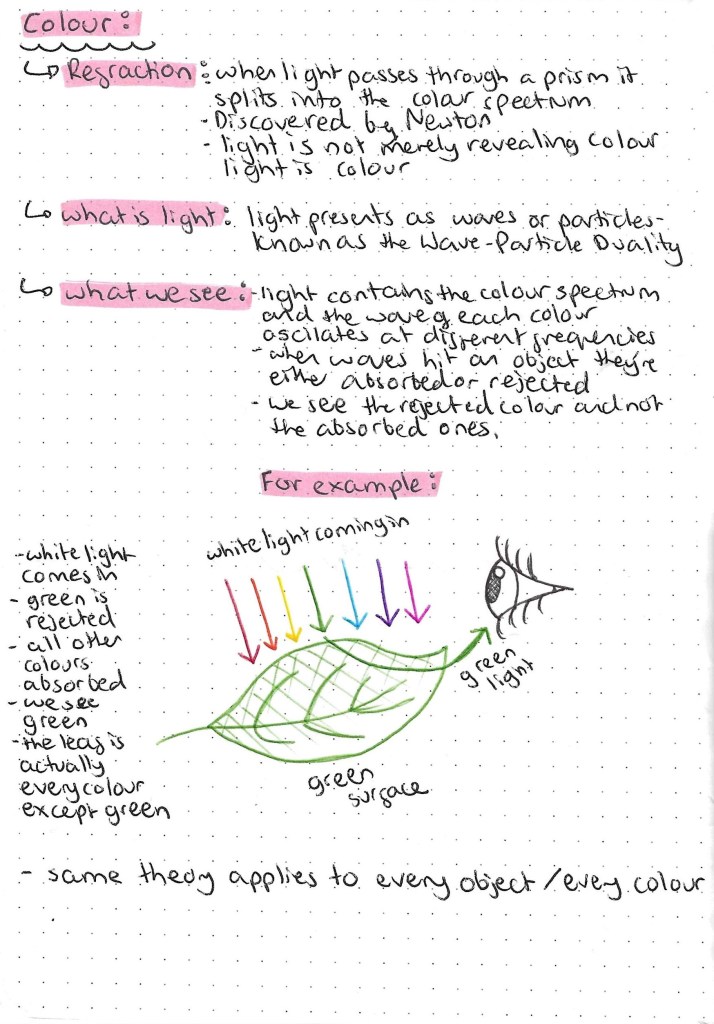 Colour:
↳ Refraction: when light passes through a prism it
splits into the colour spectrum
- Discovered by Newton
- light is not merely revealing colour
light is colour
↳ what is light: light presents as waves or particles -
known as the Wave-Particle Duality
↳ what we see: - light contains the colour spectrum
and the wave of each colour
oscilates at different frequencies
- when waves hit an object they're
either absorbed or rejected
- we see the rejected colour and not
the absorbed ones.
For example:
white light coming in
- white light
comes in
- green is
rejected
- all other
colours
absorbed
- we see
green
- the leaf is
actually
every colour
except green
green
light
green
surface
- same theory applies to every object / every colour